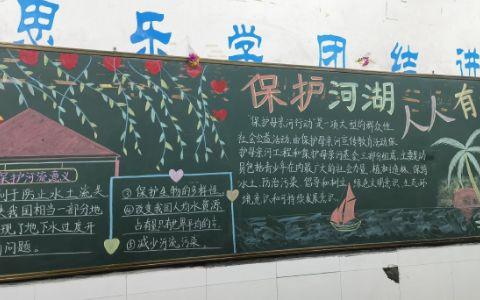 思乐学团结讲
保护河湖 人人有
"保护母亲河行动"是一项大型的群众性
社会公益活动,由保护母亲河宣传教育活动,保
护母亲河工程和保护母亲河基金三部分组成,主要动
员包括青少年在内广大的社会力量,植树造林、保持
水土、防治污染、倡导和树立绿色文明意识、生态环
境意识和可持续发展意识。
保护河流意义
利于防止水土流失
是我国相当一部分地
现了地下水过度开
问题。
③保护生物的多样性
④改变我国人均水资源
占有只有世界平均的
⑤减少河流污染